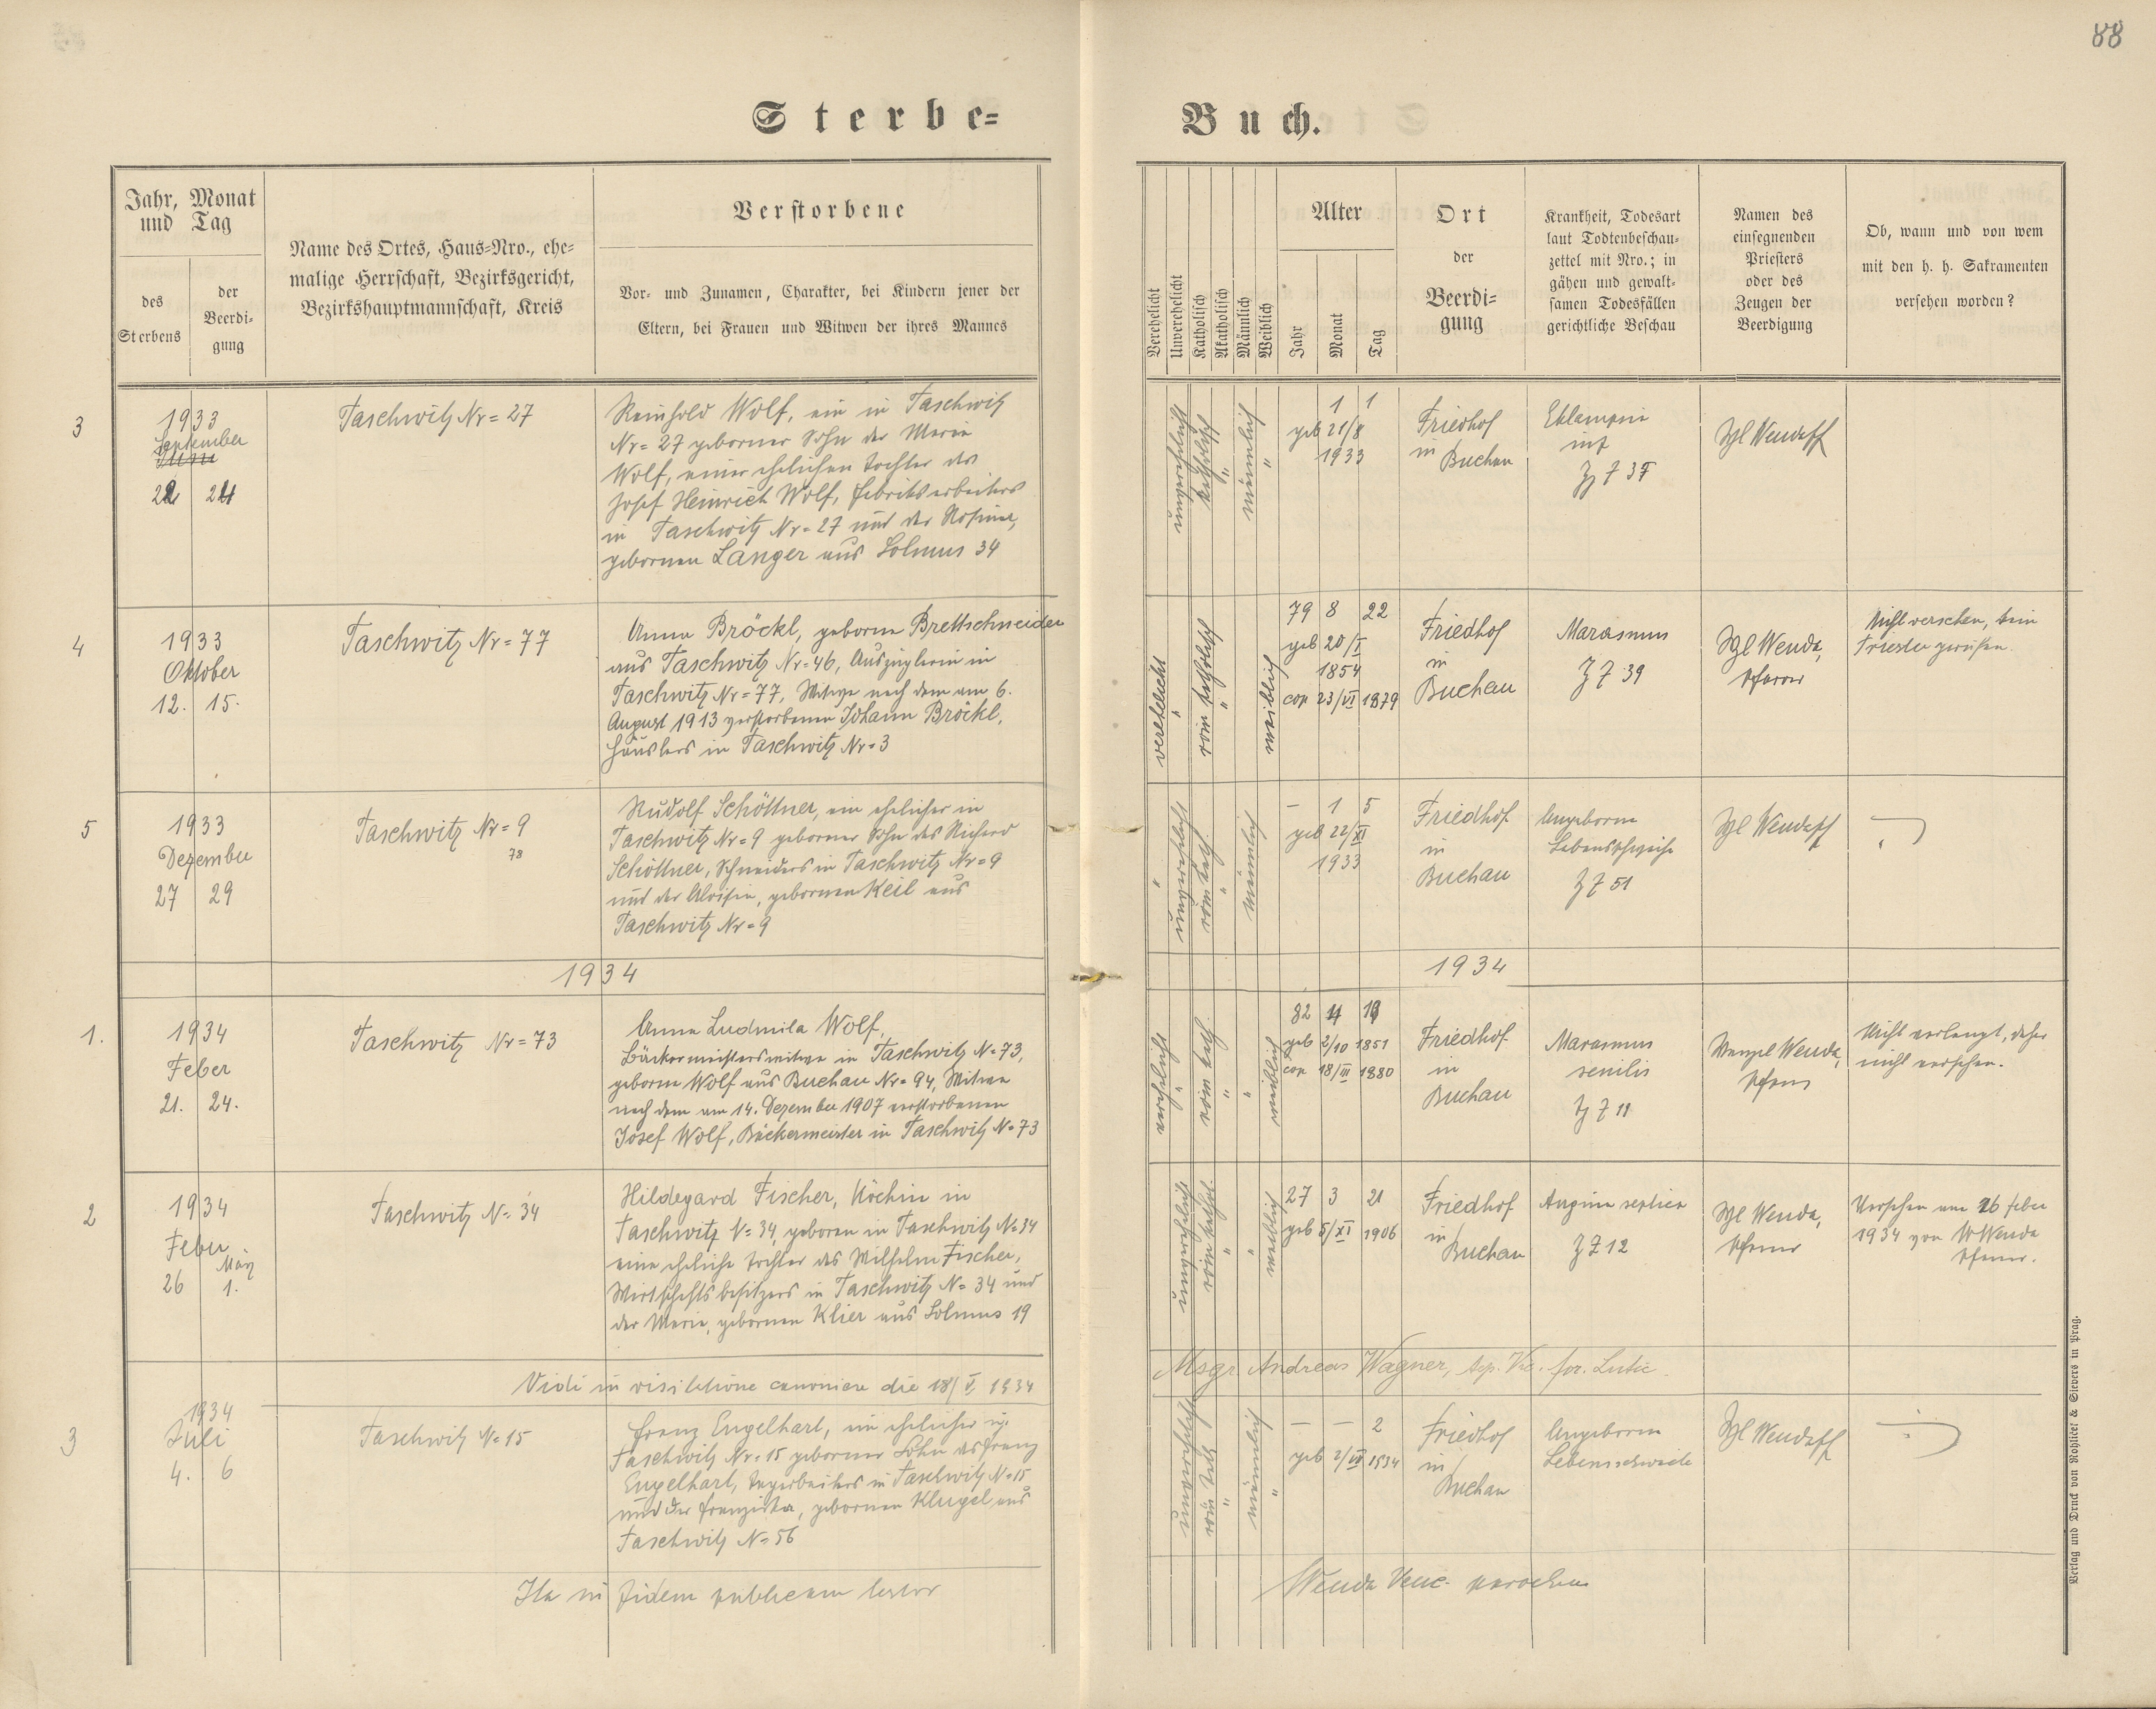 88
Sterbe-
Buch.
Jahr, Monat
und Tag
des
Sterbens
der
Beerdi-
gung
Name des Ortes, Haus-Nro., ehe-
malige Herrschaft, Bezirksgericht,
Bezirkshauptmannschaft, Kreis
Verstorbene
Vor- und Zunamen, Charakter, bei Kindern jener der
Eltern, bei Frauen und Witwen der ihres Mannes
Verehelicht
Unverehelicht
Katholisch
Akatholisch
Männlich
Weiblich
Alter
Jahr
Monat
Tag
Ort
der
Beerdi-
gung
Krankheit, Todesart
laut Todtenbeschau-
zettel mit Nro.; in
gähen und gewalt-
samen Todesfällen
gerichtliche Beschau
Namen des
einsegnenden
Priesters
oder des
Zeugen der
Beerdigung
Ob, wann und von wem
mit den h. h. Sakramenten
versehen worden?
3
1933
September
22 24
Taschwitz Nr = 27
Reinhold Wolf, ein in Taschwitz
Nr = 27 geborner Sohn der Maria
Wolf, einer ehelichen Tochter des
Josef Heinrich Wolf, Fabriksarbeiters
in Taschwitz Nr = 27 und der Rosina,
gebornen Langer aus Solmus 34
unverehelicht
katholisch "
männlich "
1 1
geb 21/8
1933
Friedhof
in Buchau
Eklampsie
inf
Z 7 37
Wzl Wendapf
4
1933
Oktober
12. 15.
Taschwitz Nr = 77
Anna Bröckl, geborne Brettschneider
aus Taschwitz Nr = 46, Auszüglerin in
Taschwitz Nr = 77, Witwe nach dem am 6.
August 1913 verstorbenen Johann Bröckl,
Häuslers in Taschwitz Nr = 3
verehelicht "
röm katholisch "
weiblich
79 8 22
geb 20/I
1854
cop 23/VI 1879
Friedhof
in
Buchau
Marasmus
Z 7 39
Wzl Wenda,
Pfarrer
Nicht versehen, kein
Priester gerufen.
5
1933
Dezember
27 29
Taschwitz Nr = 9
78
Rudolf Schöttner, ein ehelicher in
Taschwitz Nr = 9 geborner Sohn des Richard
Schöttner, Schneiders in Taschwitz Nr = 9
und der Aloisia, gebornen Keil aus
Taschwitz Nr = 9
" unverehelicht
röm kath. "
männlich
– 1 5
geb 22/XI
1933
Friedhof
in
Buchau
Angeborne
Lebensschwäche
Z 7 51
Wzl Wendapf
1934
1934
1.
1934
Feber
21. 24.
Taschwitz Nr = 73
Anna Ludmila Wolf,
Bäckermeisterswitwe in Taschwitz N = 73,
geborne Wolf aus Buchau Nr = 94, Witwe
nach dem am 14. Dezember 1907 verstorbenen
Josef Wolf, Bäckermeister in Taschwitz N = 73
verehelicht "
röm kath. "
" weiblich
82 4 19
geb 2/10 1851
cop 18/III 1880
Friedhof
in
Buchau
Marasmus
senilis
Z 7 11
Wenzel Wenda,
Pfarrer
Nicht verlangt, daher
nicht versehen.
2
1934
Feber
März
26 1.
Taschwitz N = 34
Hildegard Fischer, Köchin in
Taschwitz N = 34, geboren in Taschwitz N = 34
eine eheliche Tochter des Wilhelm Fischer,
Wirtschaftsbesitzers in Taschwitz N = 34 und
der Maria, gebornen Klier aus Solmus 19
unverehelicht
röm kathol. "
" weiblich
27 3 21
geb 5/XI 1906
Friedhof
in
Buchau
Angina septica
Z 7 12
Wzl Wenda,
Pfarrer
Versehen am 26 Feber
1934 von W Wenda
Pfarrer.
Vidi in visitatione canonica die 18/V 1934
Msgr. Andreas Wagner, Vic. for.
3
1934
Juli
4. 6
Taschwitz N = 15
Franz Engelhart, ein ehelicher in
Taschwitz Nr = 15 geborner Sohn des Franz
Engelhart, Tagarbeiters in Taschwitz N = 15
und der Franziska, gebornen Klugel aus
Taschwitz N = 56
unverehelicht
röm kath "
männlich "
– – 2
geb 2/VII 1934
Friedhof
in
Buchau
Angeborne
Lebensschwäche
Wzl Wendapf
Ita in fidem publicam testor
Wenda Venc. parochus
Verlag und Druck von Rohliček & Sievers in Prag.